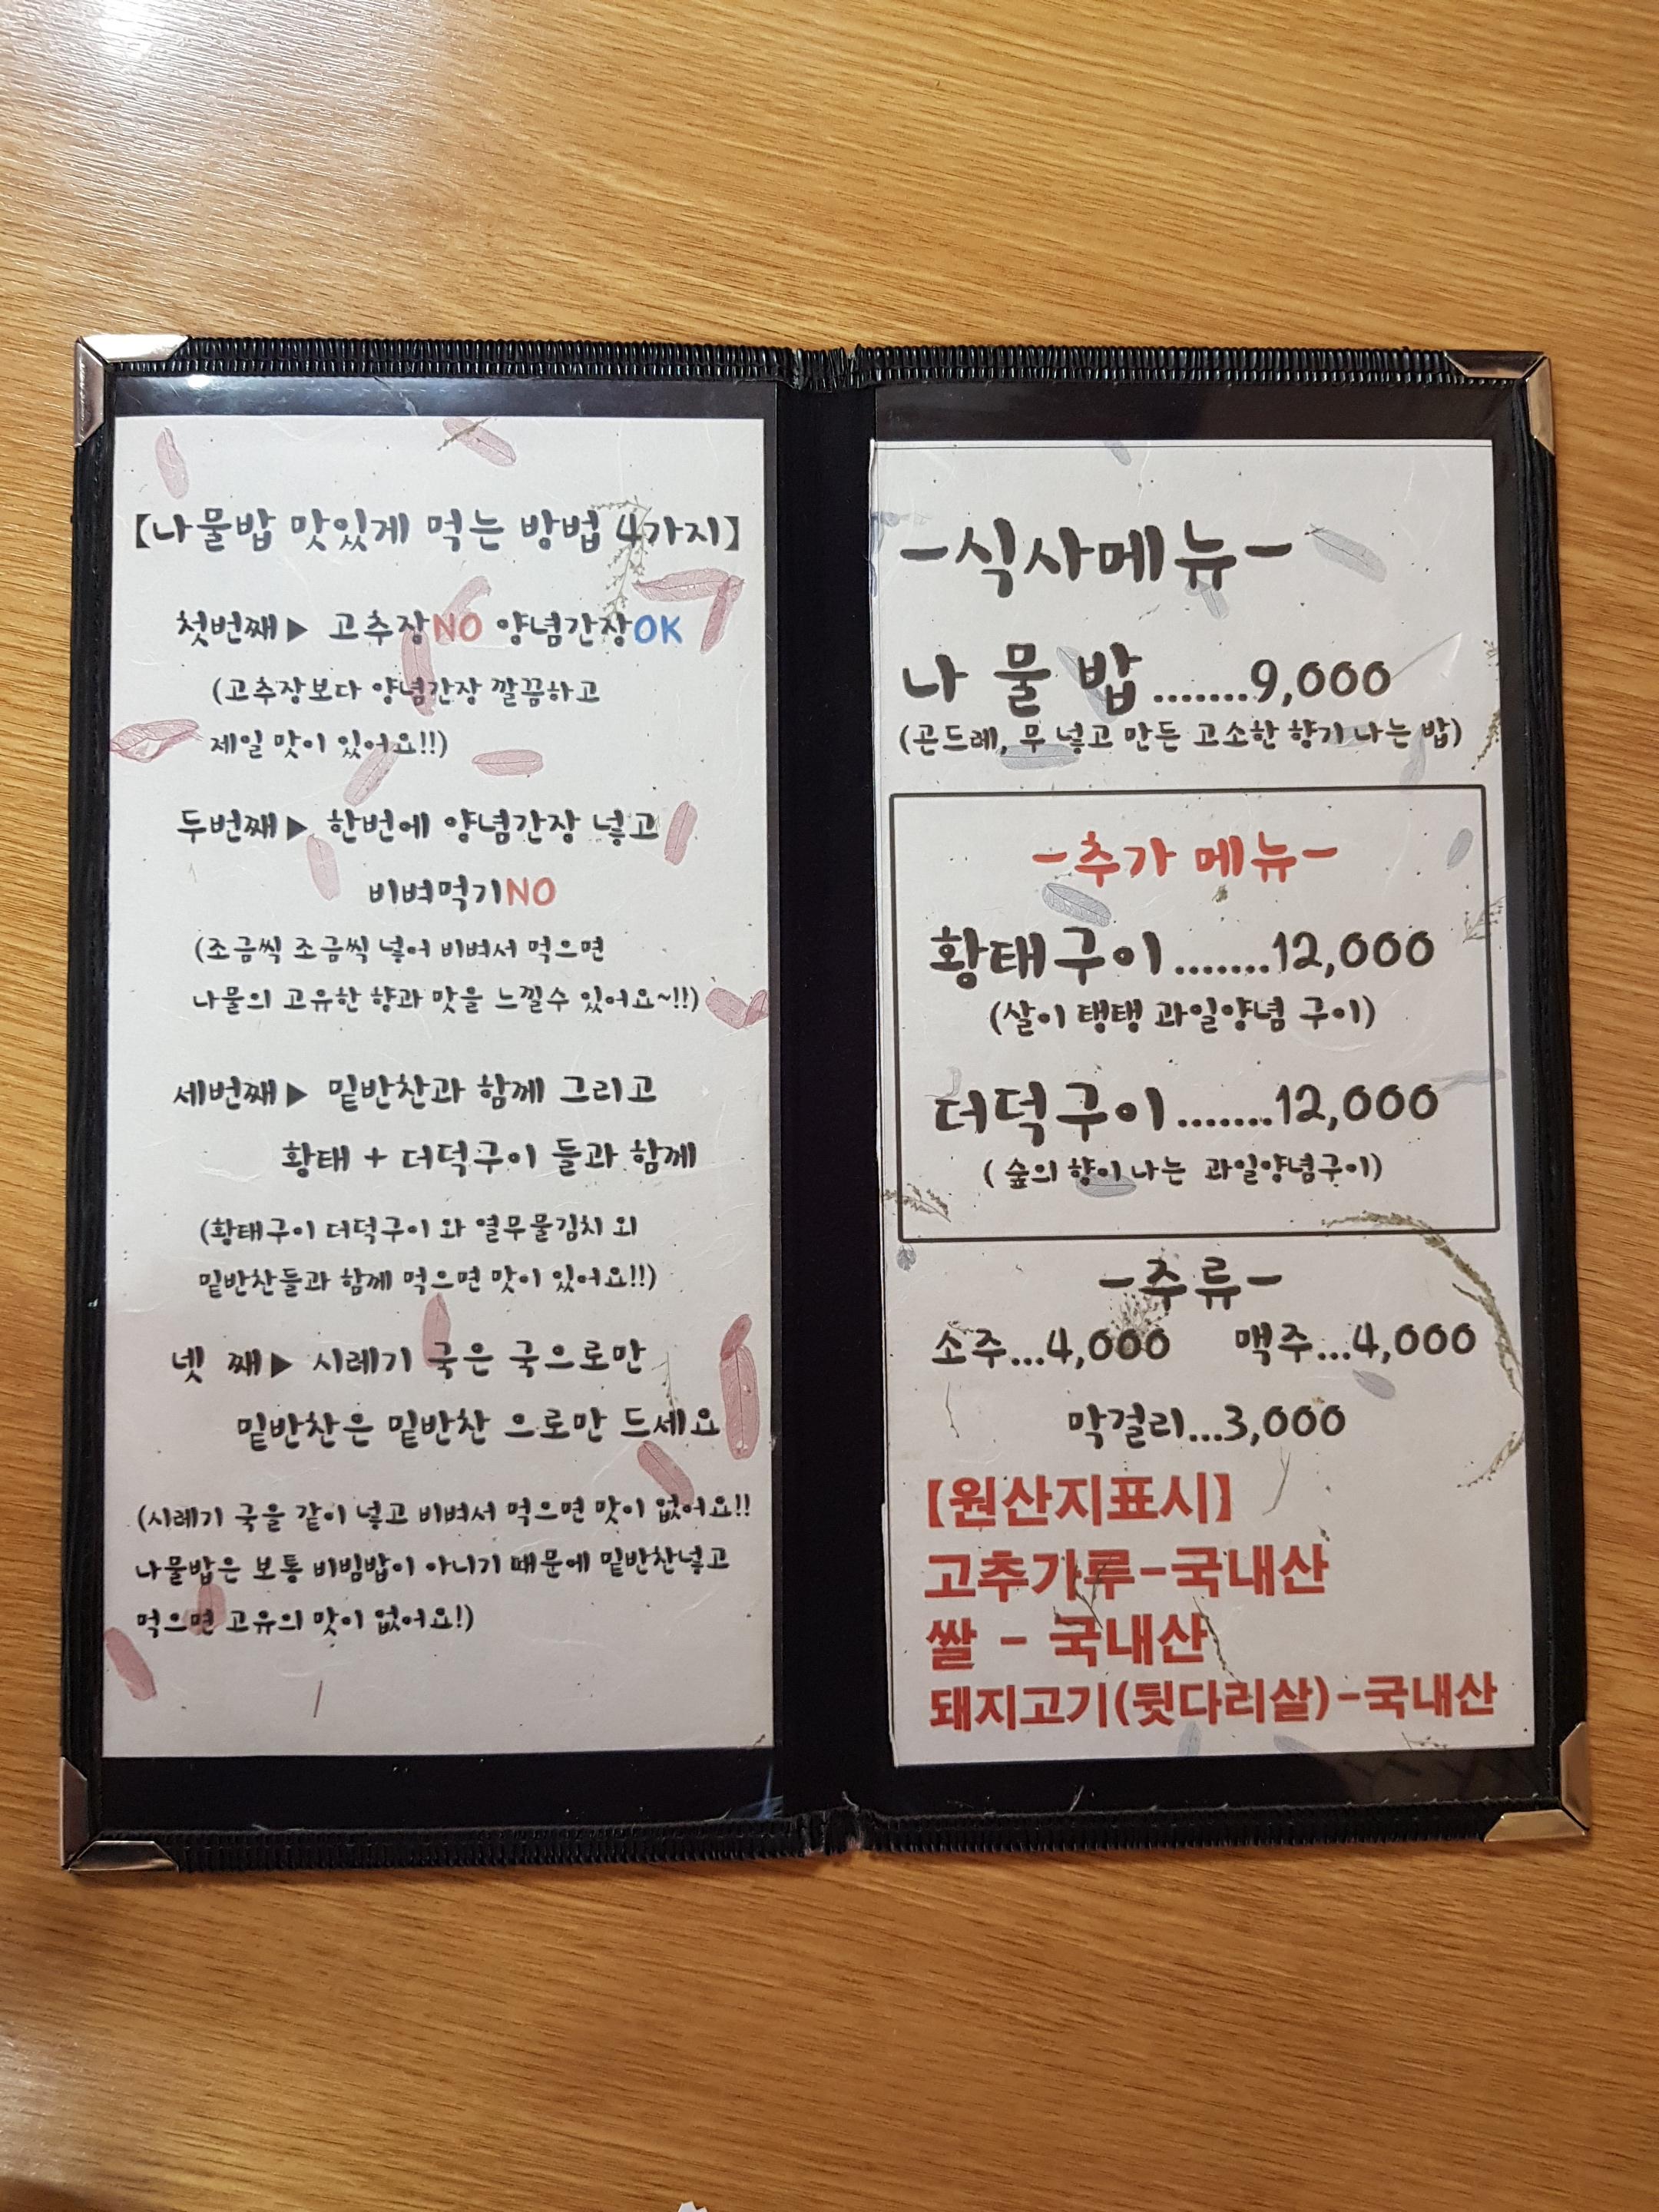 【나물밥 맛있게 먹는 방법 4가지】
첫번째▶ 고추장NO 양념간장OK
(고추장보다 양념간장 깔끔하고
제일 맛이 있어요!!)
두번째▶ 한번에 양념간장 넣고
비벼먹기NO
(조금씩 조금씩 넣어 비벼서 먹으면
나물의 고유한 향과 맛을 느낄수 있어요~!!)
세번째▶ 밑반찬과 함께 그리고
황태 + 더덕구이 들과 함께
(황태구이 더덕구이 와 열무물김치 외
밑반찬들과 함께 먹으면 맛이 있어요!!)
넷 째▶ 시레기 국은 국으로만
밑반찬은 밑반찬 으로만 드세요
(시레기 국을 같이 넣고 비벼서 먹으면 맛이 없어요!!
나물밥은 보통 비빔밥이 아니기 때문에 밑반찬넣고
먹으면 고유의 맛이 없어요!)
-식사메뉴-
나 물 밥.......9,000
(곤드레, 무 넣고 만든 고소한 향기 나는 밥)
-추가 메뉴-
황태구이.......12,000
(살이 탱탱 과일양념 구이)
더덕구이.......12,000
( 숲의 향이 나는 과일양념구이)
-주류-
소주...4,000 맥주...4,000
막걸리...3,000
【원산지표시】
고추가루-국내산
쌀 - 국내산
돼지고기(뒷다리살)-국내산